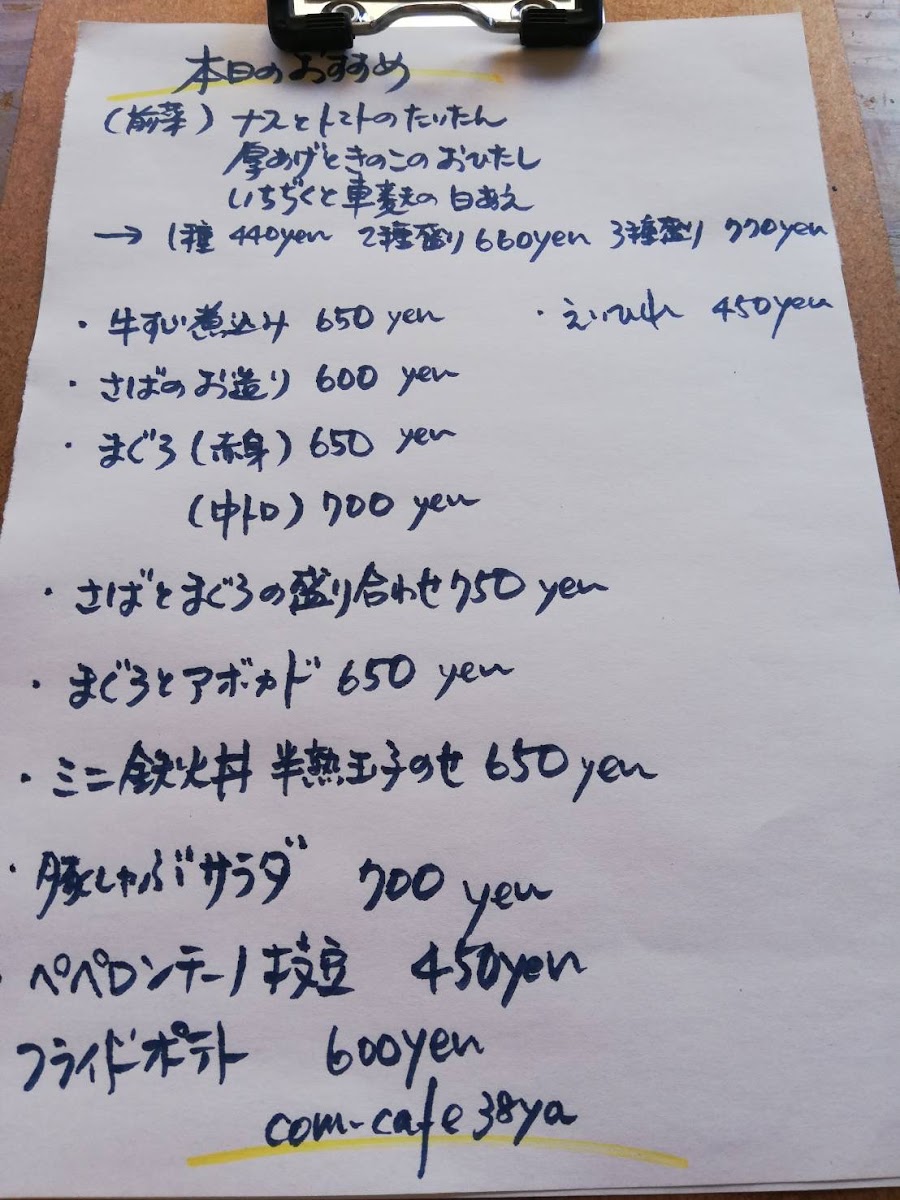 本日のおすすめ
(前菜) ナスとトマトのたいたん
厚あげときのこのおひたし
いちぢくと車麩の白あえ
→ 1種 440yen 2種盛り 660yen 3種盛り 770yen
・牛すじ煮込み 650 yen ・えいひれ 450yen
・さばのお造り 600 yen
・まぐろ(赤身) 650 yen
(中トロ) 700 yen
・さばとまぐろの盛り合わせ 750 yen
・まぐろとアボカド 650 yen
・ミニ鉄火丼 半熟玉子のせ 650 yen
・豚しゃぶサラダ 700 yen
・ペペロンテーノ枝豆 450yen
フライドポテト 600yen
com-cafe 38ya